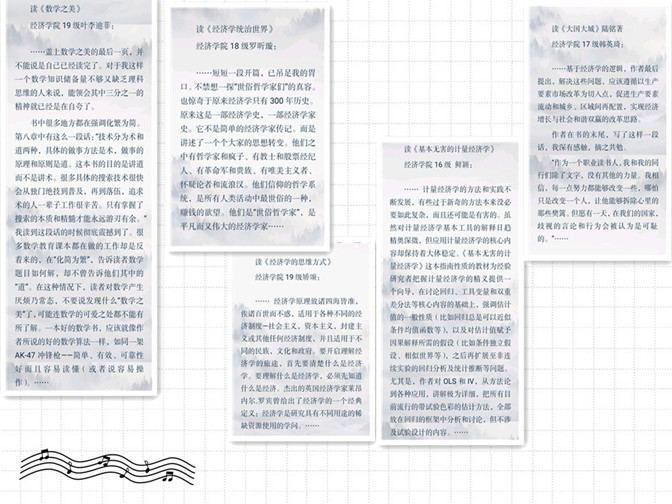 读《数学之美》
经济学院 19 级叶李迪菲：
……盖上数学之美的最后一页，并
不能说是自己已经读完了。对于我这样
一个数学知识储备量不够又缺乏理科
思维的人来说，能领会其中三分之一的
精神就已经是在自夸了。
书中很多地方都在强调化繁为简。
第八章中有这么一段话：“技术分为术和
道两种，具体的做事方法是术，做事的
原理和原则是道。这本书的目的是讲道
而不是讲术。很多具体的搜索技术很快
会从独门绝技到普及，再到落伍，追求
术的人一辈子工作很辛苦。只有掌握了
搜索的本质和精髓才能永远游刃有余。”
我读到这段话的时候彻底震撼到了。很
多数学教育课本都在做的工作却是反
着来的，在“化简为繁”，告诉读者数学
题目如何解，却不曾告诉他们其中的
“道”。在这种情况下，读者对数学产生
厌烦乃常态，不要说发现什么“数学之
美”了，可能连数学的可爱之处都不能有
所了解。一本好的数学书，应该就像作
者所说的好的数学算法一样，如同一架
AK-47 冲锋枪——简单、有效、可靠性
好而且容易读懂（或者说容易操
作）。……
读《经济学统治世界》
经济学院 18 级罗昕璇：
……短短一段开篇，已吊足我的胃
口。不禁想一探“世俗哲学家们”的真容。
也惊奇于原来经济学只有 300 年历史。
原来这是一部经济学史，一部经济学家
史。它不是简单的经济学家传记。而是
讲述了一个个大家的思想转变。他们之
中有哲学家和疯子、有教士和股票经纪
人、有革命军和贵族、有唯美主义者、
怀疑论者和流浪汉。他们信仰的哲学系
统，是所有人类活动中最世俗的一种，
赚钱的欲望。他们是“世俗哲学家”，是
平凡而又伟大的经济学家……
读《经济学的思维方式》
经济学院 19 级矫颂：
…… 经济学原理放诸四海皆准，
俟诸百世而不惑，适用于各种不同的经
济制度—社会主义，资本主义，封建主
义或其他任何经济制度，并且适用于不
同的民族，文化和政府。要开启理解经
济学的旅途，首先要清楚什么是经济
学。要理解什么是经济学，必须先知道
什么是经济。杰出的英国经济学家莱昂
内尔.罗宾曾给出了经济学的一个经典
定义：经济学是研究具有不同用途的稀
缺资源使用的学问。……
读《基本无害的计量经济学》
经济学院 16 级 鲜颖：
…… 计量经济学的方法和实践不
断发展，有些过于新奇的方法本来没必
要如此复杂，而且还可能是有害的。虽
然对计量经济学基本工具的解释日趋
精奥深微，但应用计量经济学的核心内
容却保持着大体稳定。《基本无害的计
量经济学》这本指南性质的教材为经验
研究者把握计量经济学的精义提供一
个向导，在讨论回归、工具变量和双重
差分法等核心内容的基础上，强调估计
值的一般性质（比如回归总是可以近似
条件均值函数等），以及对估计值赋予
因果解释所需的假设（比如条件独立假
设、相似世界等），之后再扩展至非连
续实验的回归分析及统计推断等问题。
尤其是，作者对 OLS 和 IV，从方法论
到各种应用，讲解极为详细，把所有目
前流行的带试验色彩的估计方法，全部
放在回归的框架中分析和讨论，但不涉
及试验设计的内容。……
读《大国大城》陆铭著
经济学院 17 级韩英琦：
……基于经济学的逻辑，作者最后
提出，解决这些问题，应该遵循以生产
要素市场改革为切入点，促进生产要素
流动和城乡、区域间再配置，实现经济
增长与社会和谐双赢的改革思路。
作者在书的末尾，写了这样一段
话，我深有感触，摘之共勉。
“作为一个职业读书人，我和我的同
行们除了文字，没有其他的力量。我相
信，每一点努力都能够改变一些，哪怕
只是改变一个人，让他能够拆除心里的
那些樊篱。但愿有一天，在我们的国家，
歧视的言论和行为会被认为是可耻
的。”……